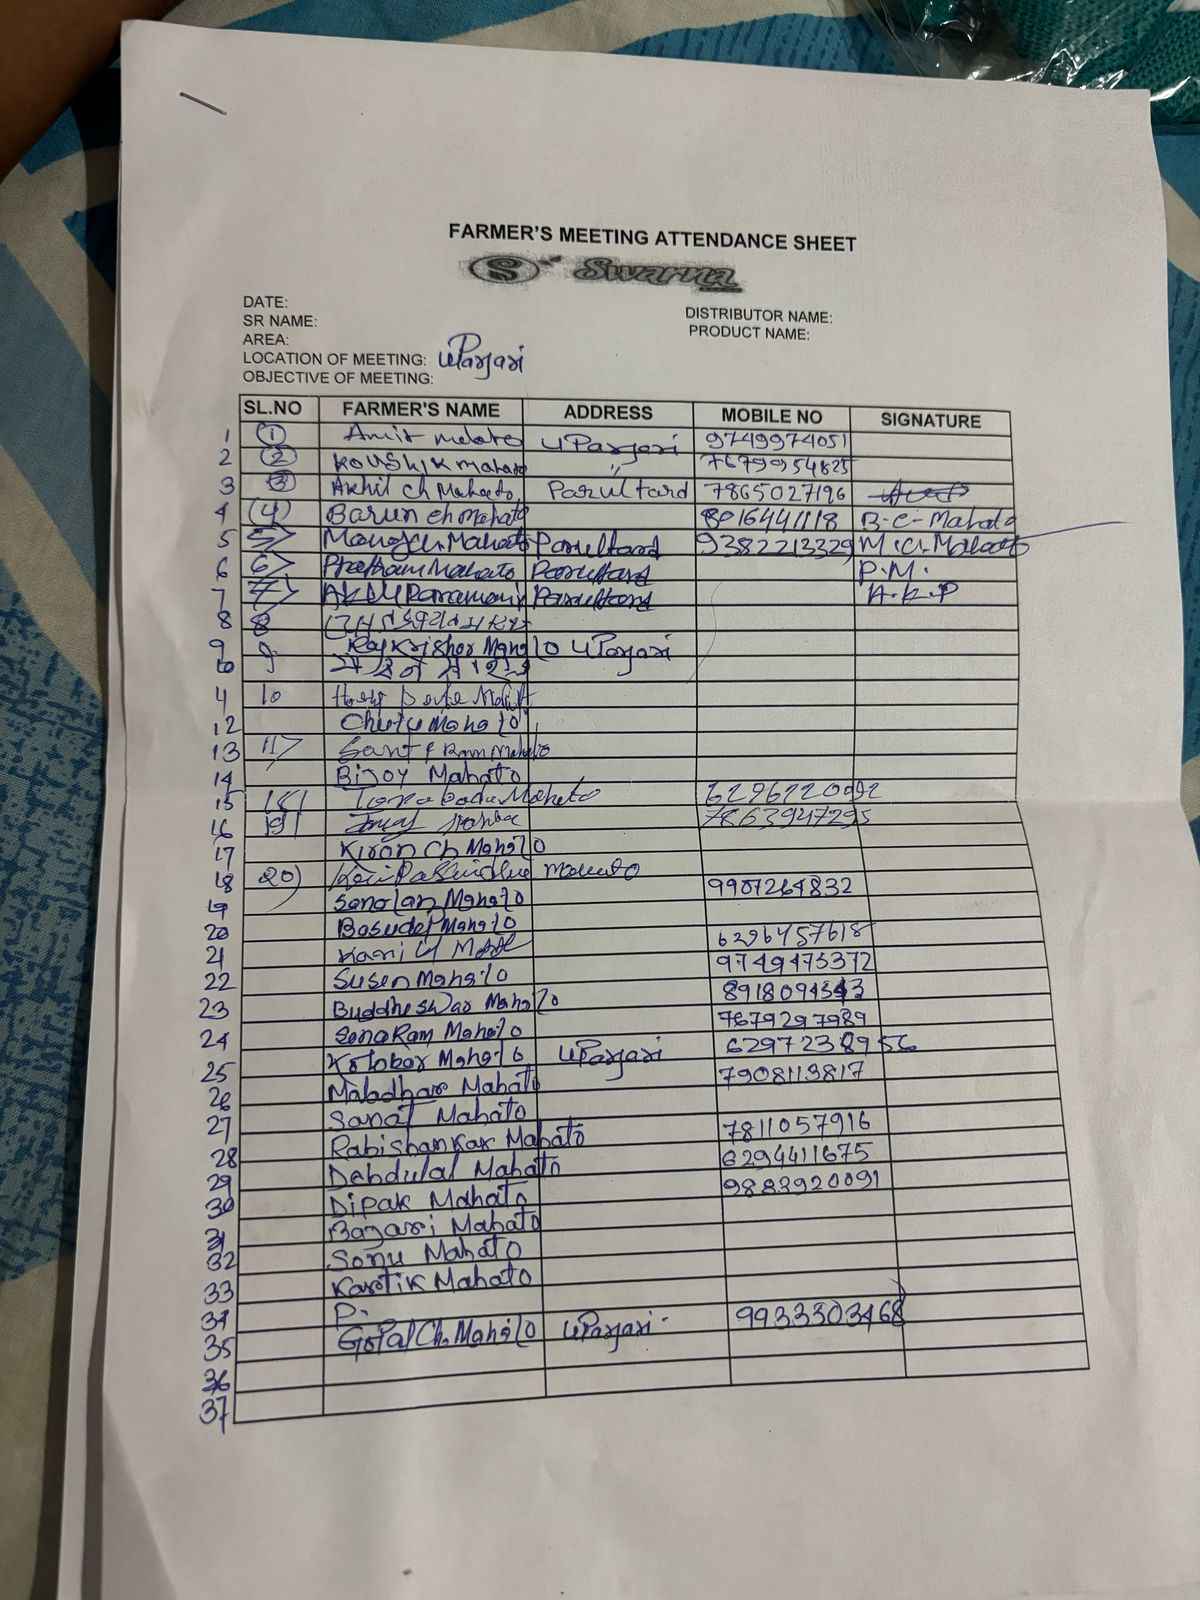 FARMER'S MEETING ATTENDANCE SHEET
S Swarna
DATE:
SR NAME:
AREA:
LOCATION OF MEETING: uParjari
OBJECTIVE OF MEETING:
DISTRIBUTOR NAME:
PRODUCT NAME:
SL.NO FARMER'S NAME ADDRESS MOBILE NO SIGNATURE
1 1 Amit Mahato uParjari 9749974051
2 2 Koushik mahato " 7679954825
3 3 Akhil ch Mahato Parultard 7865027196
4 (4) Barun ch Mahato 8016441118 B-C-Mahato
5 5> Manoj ch. Mahato Parultard 9382213329 M.ch.Mahato
6 6> Pratham Mahato Parultard P.M.
7 7> Akhil Paramanik Parultard A.K.P
8 8
9 9 Rajkrishor Mahato uParjari
10
11 10
12 Chutu Mahato
13 11> Ram Mahato
14 Bijoy Mahato
15 18) Mahato 6296720092
16 19) 7863947295
17 Kiron Ch Mahato
18 20) Mahato
19 Sanatan Mahato 9907264832
20 Basudej Mahato
21 6296457618
22 Susen Mahato 9749475372
23 Buddheswar Mahato 8918094343
24 SonaRam Mahato 7679297989
25 Kolobor Mahato uParjari 6297238956
26 Maladhar Mahato 7908113817
27 Sanat Mahato
28 Rabishankar Mahato 7811057916
29 Debdulal Mahato 6294411675
30 Dipak Mahato 9883920091
31 Bazari Mahato
32 Sonu Mahato
33 Kartik Mahato
34 P.
35 Gopal Ch. Mahato uParjari. 9933303468
36
37